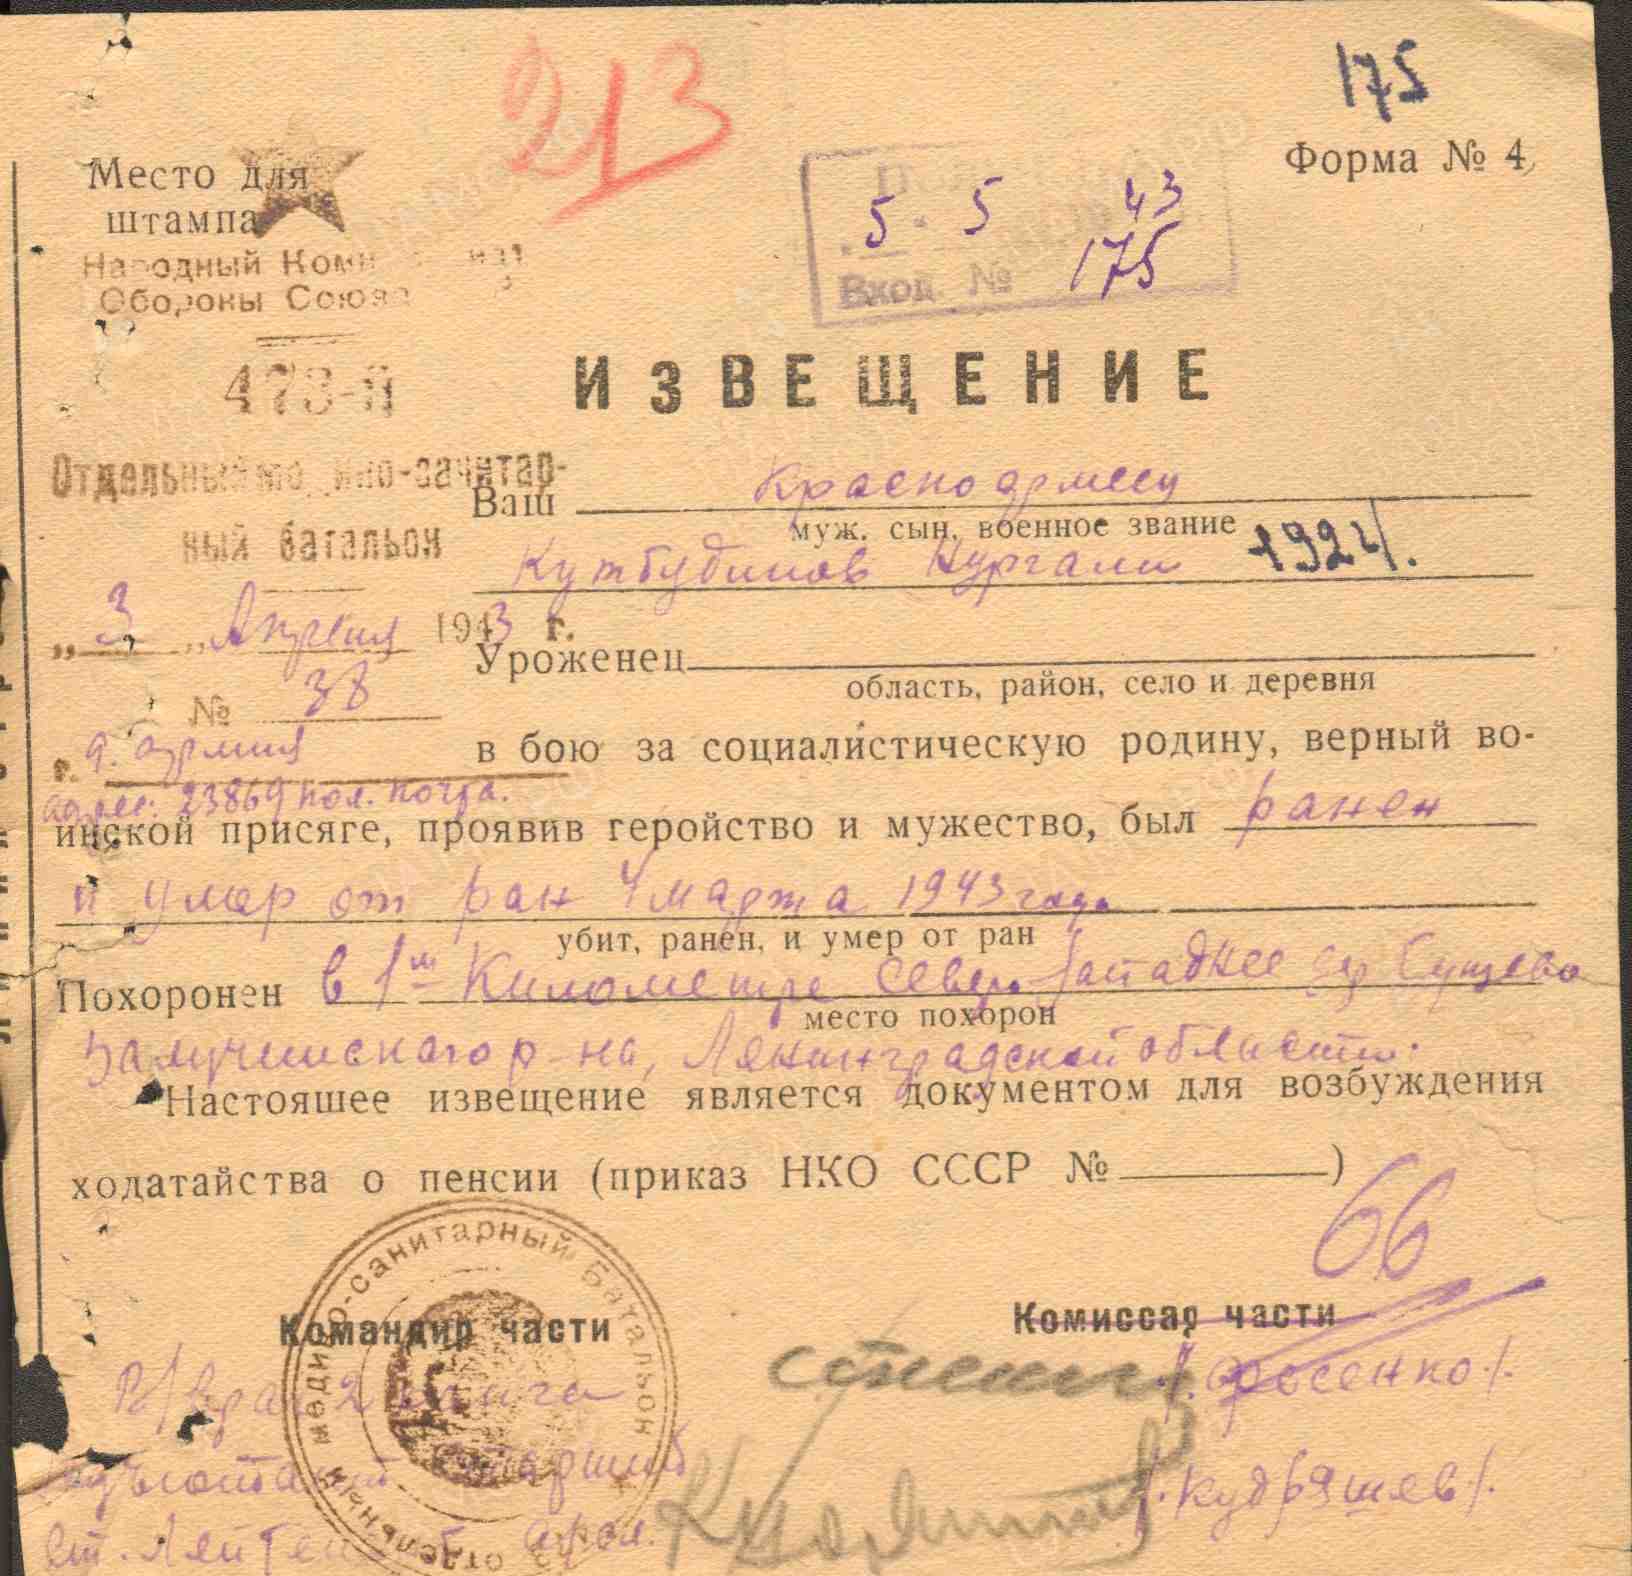 213
175
Форма № 4
Место для
штампа
5 5 43
Вход. № 175
Народный
Обороны Союза
473-й
ИЗВЕЩЕНИЕ
Отдельный
ный батальон
Ваш Красноармеец
муж, сын, военное звание
Кутбудинов Нургали 1924.
"3" Апреля 1943 г.
Уроженец
область, район, село и деревня
№ 38
г. д. армия
в бою за социалистическую родину, верный во-
адрес: 23869 пол. почта.
инской присяге, проявив геройство и мужество, был ранен
и умер от ран 4 марта 1943 года
убит, ранен, и умер от ран
Похоронен в 1м Километре Северо-Западнее Сущево
место похорон
р-на, Ленинградской области.
Настоящее извещение является документом для возбуждения
ходатайства о пенсии (приказ НКО СССР № )
66
медико-санитарный батальон
Командир части
Комиссар части
/Фосенко/.
старший
/Кудряшев/.
ст. Лейтенант